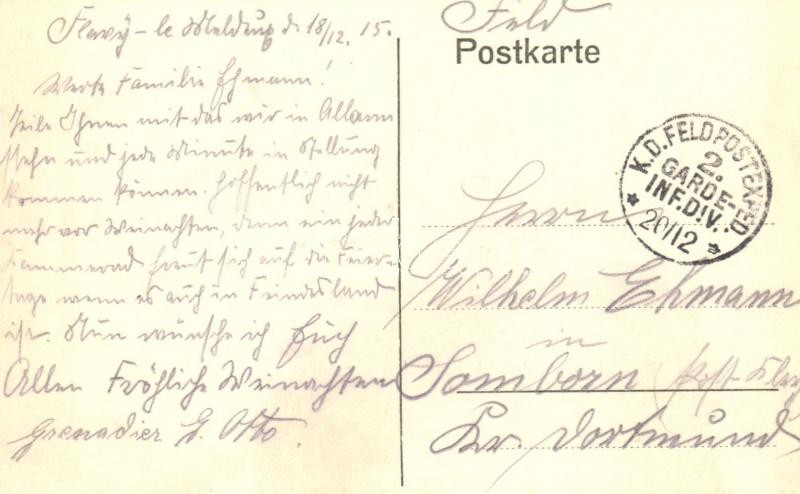 Flavÿ-le Meldeux d. 18/12. 15.
Werte Familie Ehmann!
Teile Ihnen mit das wir in Allarm
stehn und jede Minute in Stellung
kommen können. Hoffentlich nicht
mehr vor Weinachten, denn ein jeder
Kammerad freut sich auf die Feier-
tage wenn es auch in Feindesland
ist. Nun wünsche ich Euch
Allen Fröhliche Weinachten
Grenadier G. Otto.
Feld
Postkarte
K.D. FELDPOSTEXPED
2.
GARDE-
INF.DIV.
* 20/12 *
Herrn
Wilhelm Ehmann
in
Somborn (Post
Kr. Dortmund